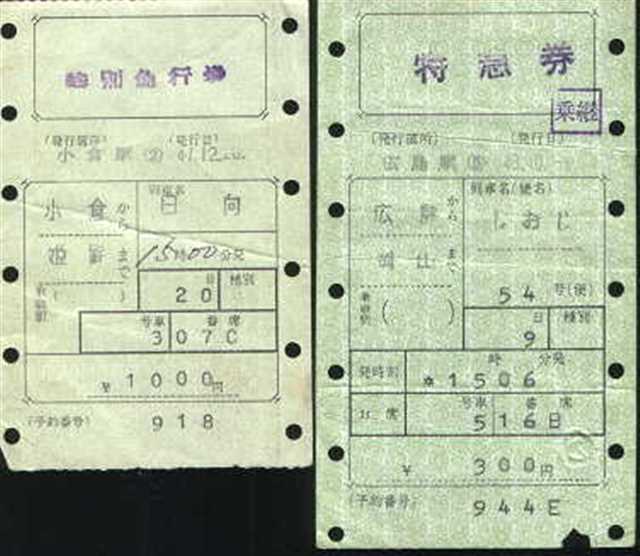 特別急行券
(発行箇所) (発行日)
小倉駅② 41.12.
小倉から
列車名
日向
姫路まで
15時00分発
( )
日 種別
20
号車 番席
3 07C
¥1000円
(予約番号)
918
特急券
乗継
(発行箇所) (発行日)
広島駅 43.10.
広島から
列車名(便名)
しおじ
岡山まで
( )
54号(便)
日 種別
9
発時刻
時 分発
*1506
座席
号車 番席
5 16B
¥ 300円
(予約番号) 944E